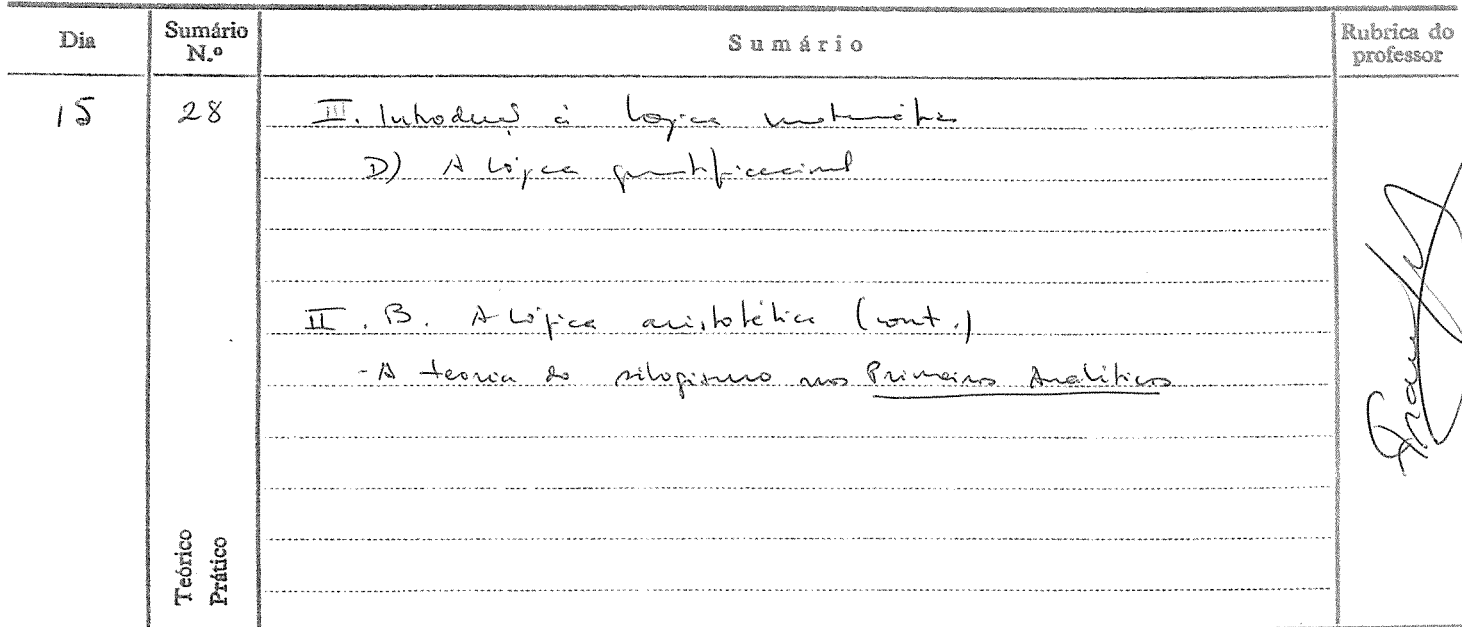 Dia
Sumário N.º
Sumário
Rubrica do professor
15
28
III. Introduç à Lógica matemática
D) A Lógica quantificacional
II. B. A Lógica aristotélica (cont.)
- A teoria do silogismo nos Primeiros Analíticos
Teórico
Prático